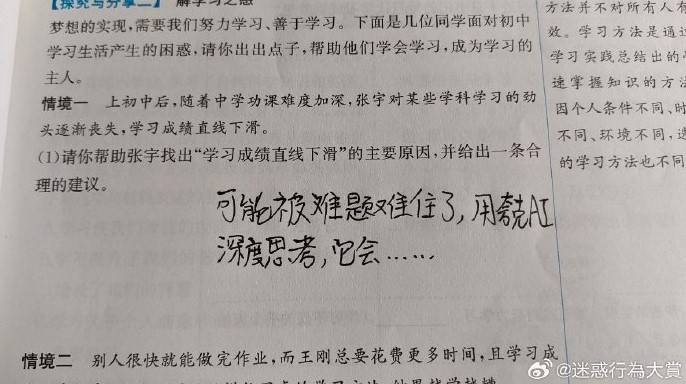 【探究与分享二】 解学习之惑
梦想的实现,需要我们努力学习、善于学习。下面是几位同学面对初中
学习生活产生的困惑,请你出出点子,帮助他们学会学习,成为学习的
主人。
情境一 上初中后,随着中学功课难度加深,张宇对某些学科学习的劲
头逐渐丧失,学习成绩直线下滑。
(1)请你帮助张宇找出“学习成绩直线下滑”的主要原因,并给出一条合
理的建议。
可能被难题难住了,用夸克AI
深度思考,它会……
情境二 别人很快就能做完作业,而王刚总要花费更多时间,且学习成
方法并不对所有人有
效。学习方法是通过
学习实践总结出的
速掌握知识的方法
因个人条件不同、时
不同、环境不同,选
的学习方法也不同
@迷惑行為大賞